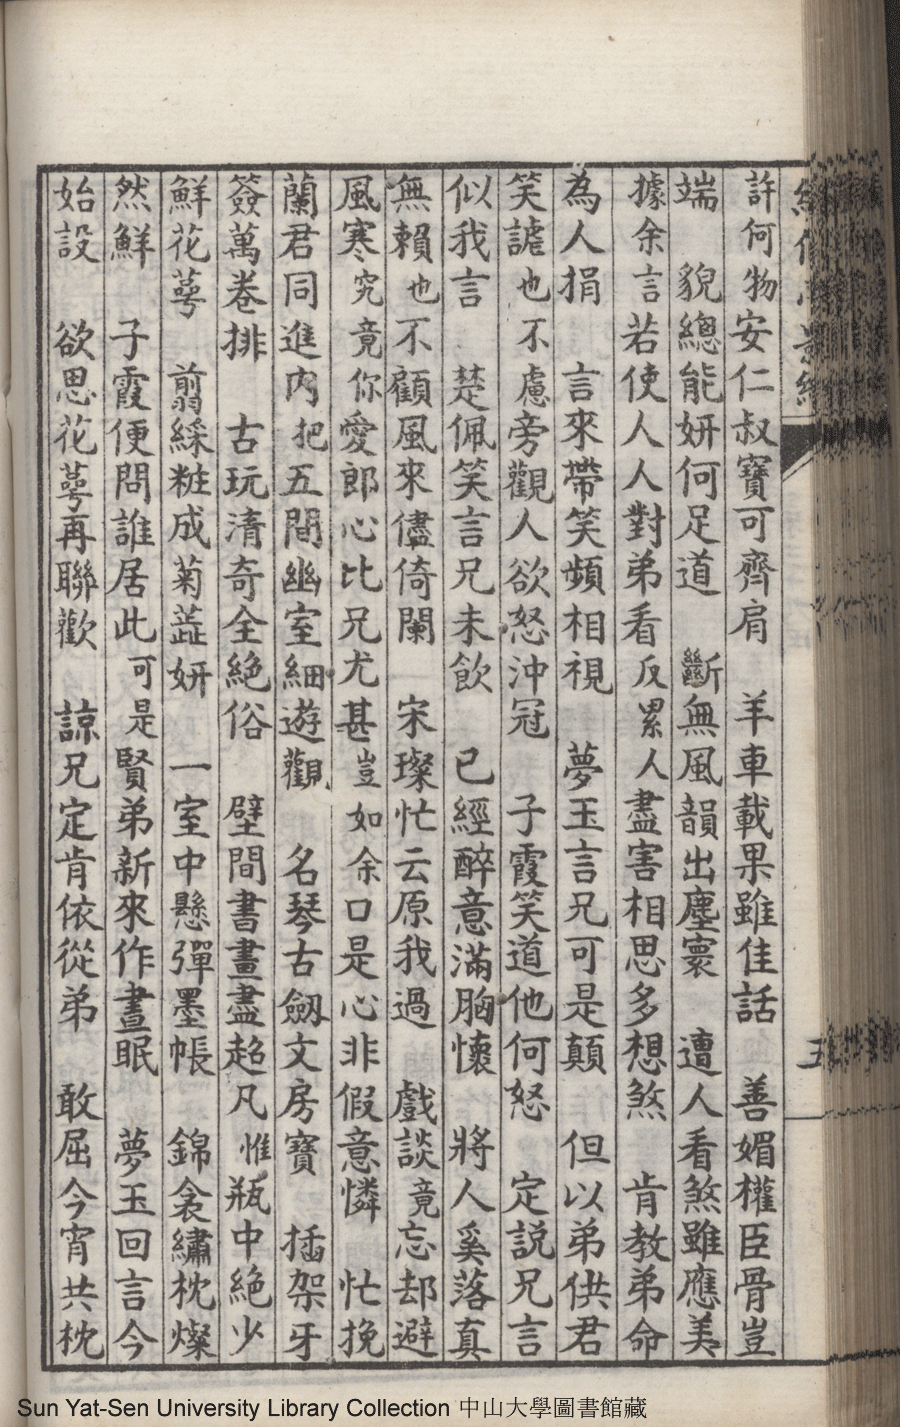 許何物安仁叔寶可齊肩　羊車載果雖佳話　善媚權臣骨豈
端　貌總能妍何足道　斷無風韻出塵寰　遭人看煞雖應美
據余言若使人人對弟看反累人盡害相思多想煞　肯教弟命
為人捐　言來帶笑頻相視　夢玉言兄可是顛　但以弟供君
笑謔也不慮旁觀人欲怒沖冠　子霞笑道他何怒　定説兄言
似我言　楚佩笑言兄未飲　已經醉意滿胸懷　將人奚落真
無賴也不顧風來儘倚闌　宋璨忙云原我過　戲談竟忘却避
風寒究竟你愛郎心比兄尤甚豈如余口是心非假意憐　忙挽
蘭君同進内把五間幽室細遊觀　名琴古劔文房寶　插架牙
簽萬卷排　古玩清奇全絶俗　壁間書畫盡超凡惟瓶中絶少
鮮花萼　剪綵粧成菊蕋妍　一室中懸彈墨帳　錦衾繡枕燦
然鮮　子霞便問誰居此可是賢弟新來作晝眠　夢玉回言今
始設　欲思花萼再聯歡　諒兄定肯依從弟　敢屈今宵共枕
五
Sun Yat-Sen University Library Collection 中山大學圖書館藏